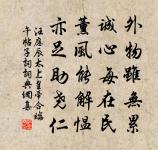 外物雖無累
誠心每在民
薰風能解慍
亦足助堯仁
汪應辰太上皇帝合端
午帖子詞詞典網集